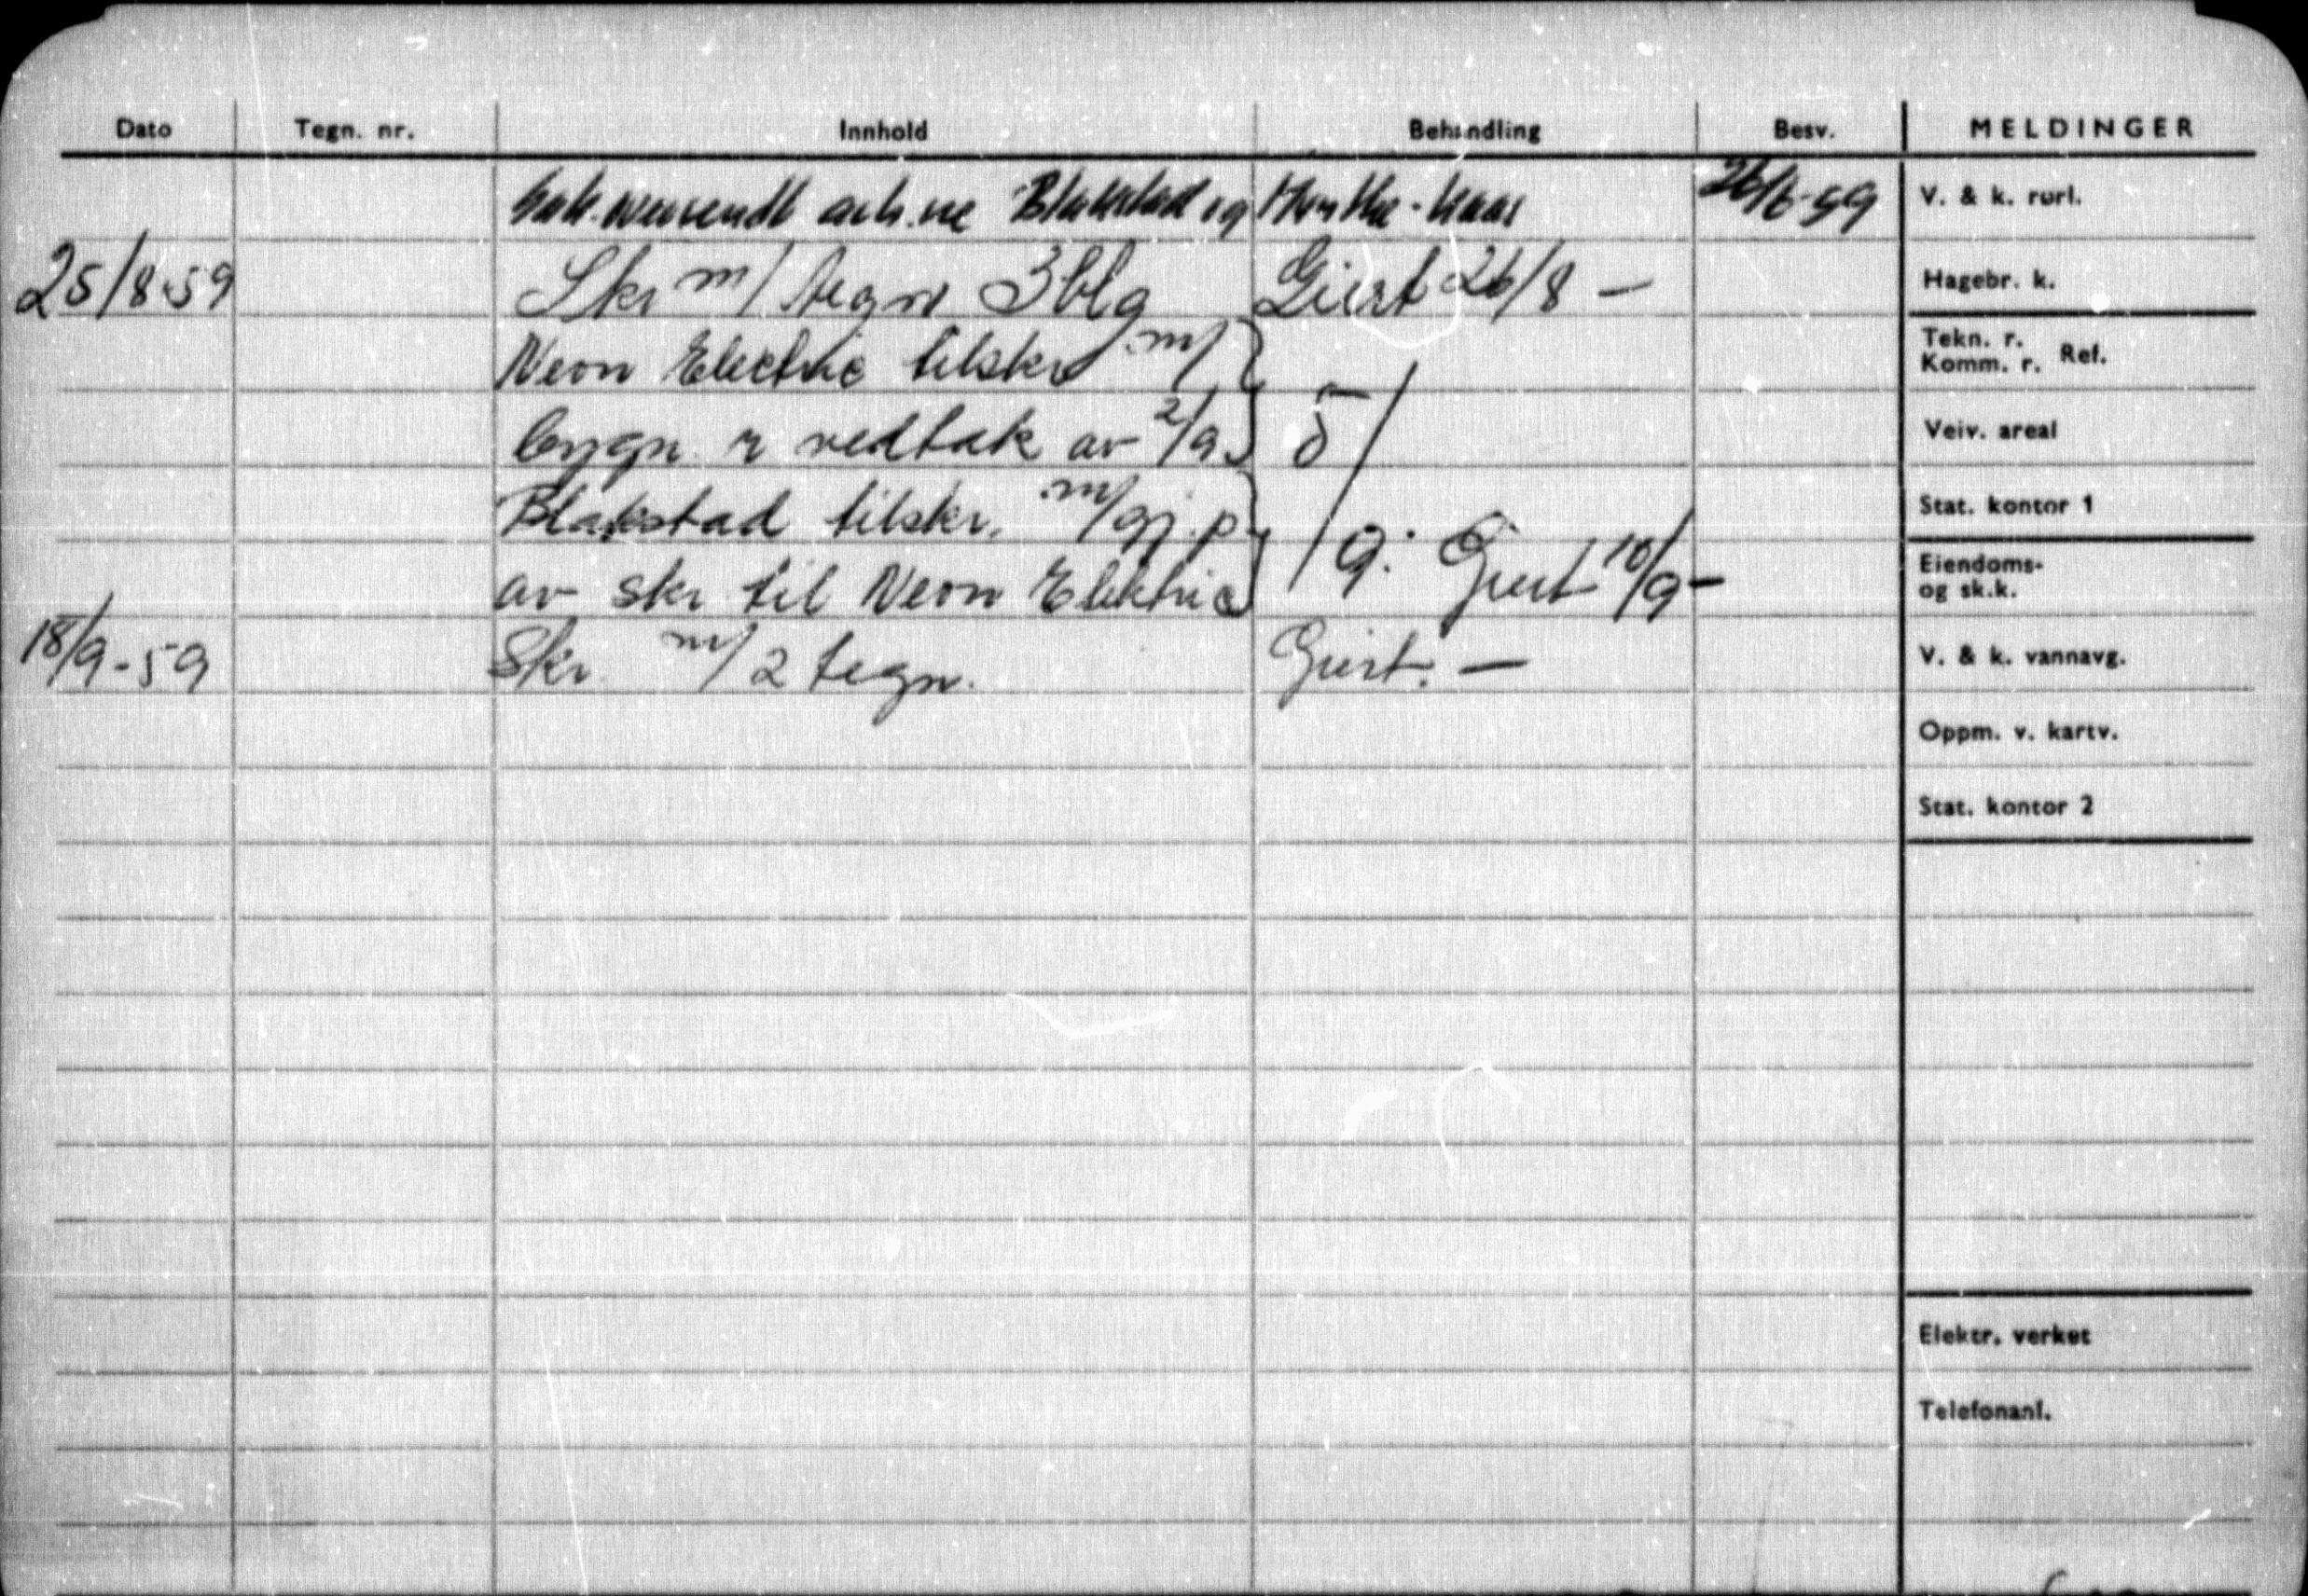 Dato Tegn. nr. Innhold Behandling Besv. MELDINGER
Sak oversendt ark.ne Blakstad og Munthe-Kaas 26/6-59
25/8-59 Skr m/ tegn 3 blg Giert 26/8 —
Neon Electric tilskr m/
bygn. r vedtak av 2/9 5/
Blakstad tilskr. m/gj.p.
av skr til Neon Elektric /9. Giert 10/9 —
18/9-59 Skr. m/2 tegn. Giert. —
V. & k. rørl.
Hagebr. k.
Tekn. r.
Komm. r. Ref.
Veiv. areal
Stat. kontor 1
Eiendoms-
og sk.k.
V. & k. vannavg.
Oppm. v. kartv.
Stat. kontor 2
Elektr. verket
Telefonanl.